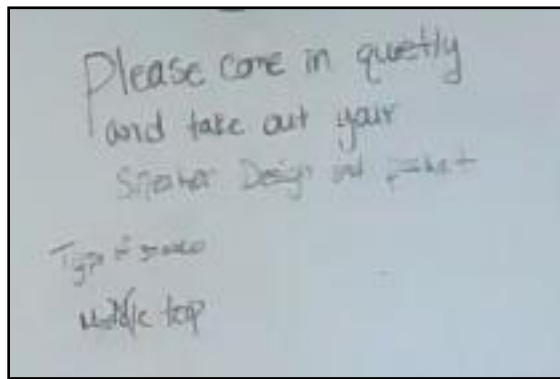 Please come in quietly
and take out your
Sneaker Design and packet
Type of
Middle top